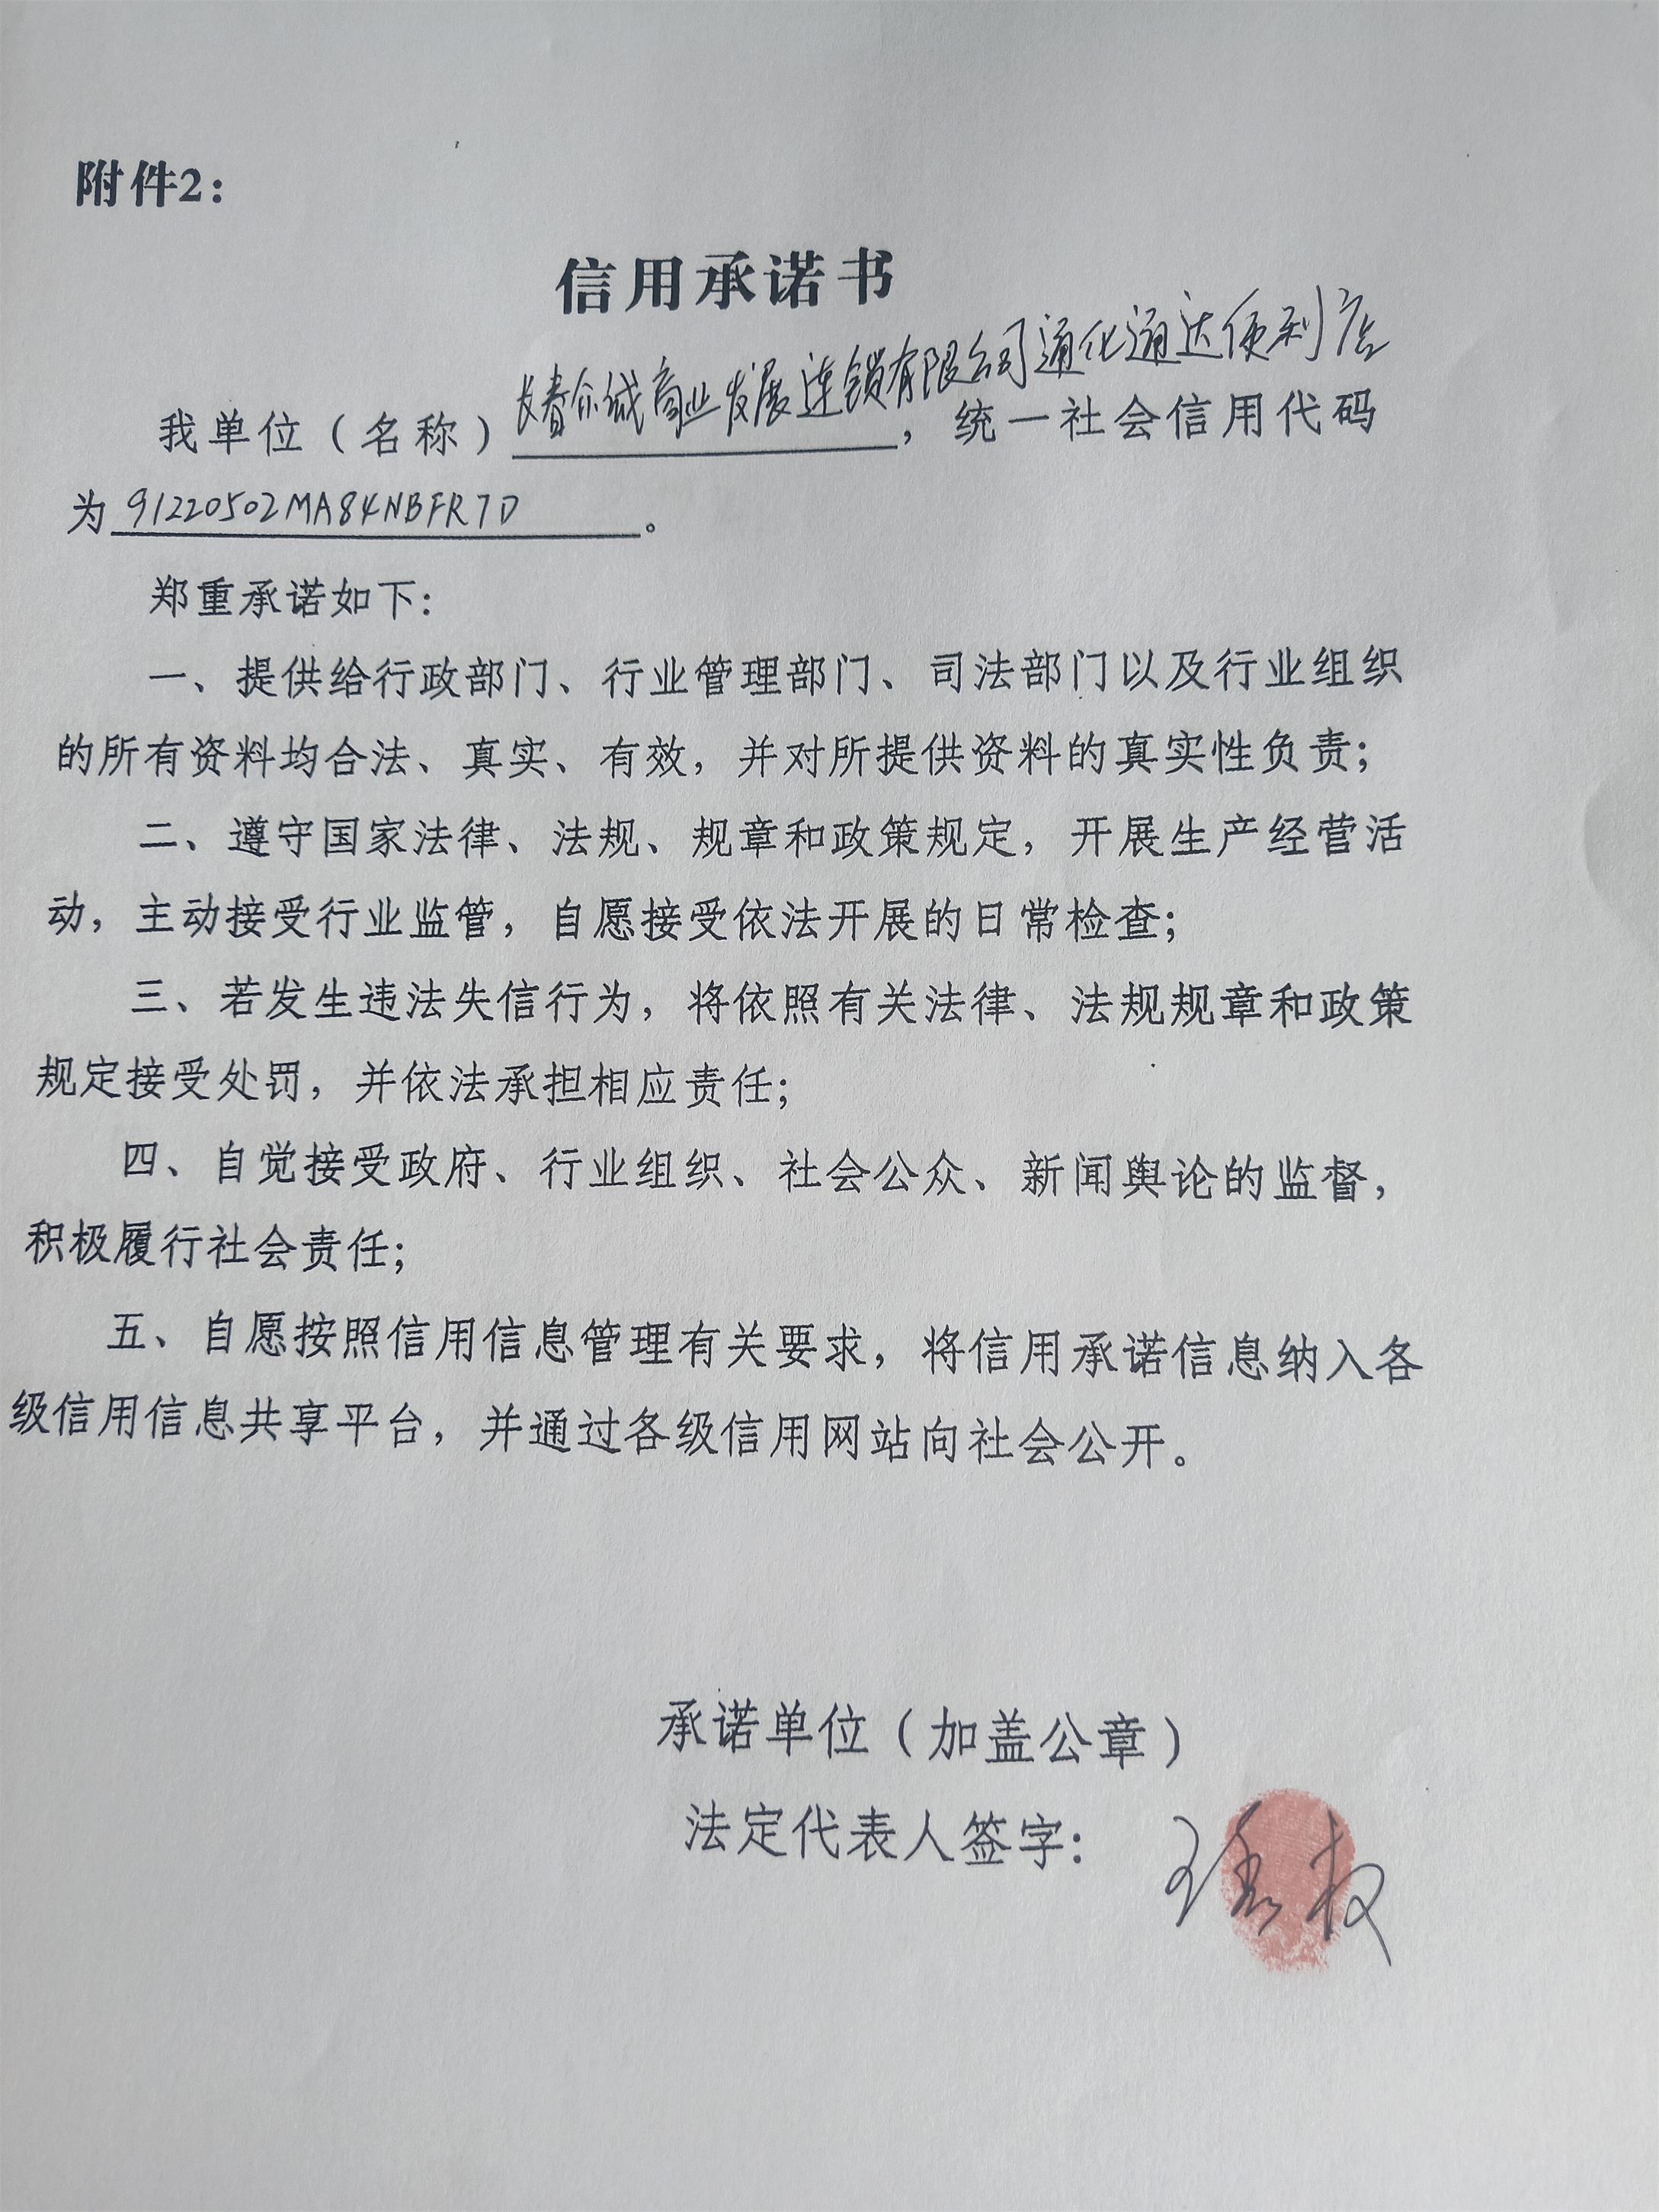 附件2：
信用承诺书
我单位（名称）长春众诚商业发展连锁有限公司通化通达便利店，统一社会信用代码
为91220502MA84NBFR7D。
郑重承诺如下：
一、提供给行政部门、行业管理部门、司法部门以及行业组织
的所有资料均合法、真实、有效，并对所提供资料的真实性负责；
二、遵守国家法律、法规、规章和政策规定，开展生产经营活
动，主动接受行业监管，自愿接受依法开展的日常检查；
三、若发生违法失信行为，将依照有关法律、法规规章和政策
规定接受处罚，并依法承担相应责任；
四、自觉接受政府、行业组织、社会公众、新闻舆论的监督，
积极履行社会责任；
五、自愿按照信用信息管理有关要求，将信用承诺信息纳入各
级信用信息共享平台，并通过各级信用网站向社会公开。
承诺单位（加盖公章）
法定代表人签字：